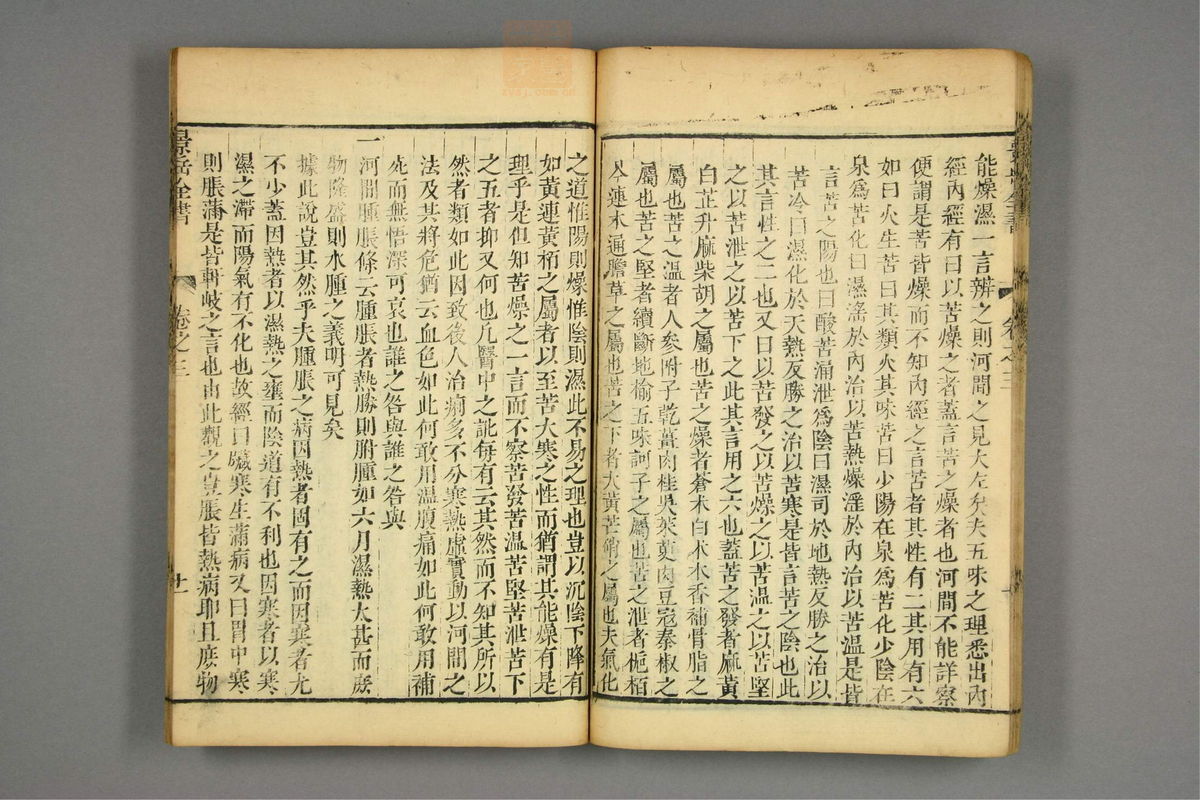 能燥濕一言辨之則河間之見大左矣夫五味之理悉出內
經內經有曰以苦燥之者蓋言苦之燥者也河間不能詳察
便謂是苦皆燥而不知內經之言苦者其性有二其用有六
如曰火生苦曰其類火其味苦曰少陽在泉爲苦化少陰在
泉爲苦化曰濕淫於內治以苦熱燥淫於內治以苦溫是皆
言苦之陽也曰酸苦涌泄爲陰曰濕司於地熱反勝之治以
苦冷曰濕化於天熱反勝之治以苦寒是皆言苦之陰也此
其言性之二也又曰以苦發之以苦燥之以苦溫之以苦堅
之以苦泄之以苦下之此其言用之六也蓋苦之發者麻黃
白芷升麻柴胡之屬也苦之燥者蒼朮白朮木香補骨脂之
屬也苦之溫者人參附子乾薑肉桂吳茱萸肉豆寇秦椒之
屬也苦之堅者續斷地榆五味訶子之屬也苦之泄者梔栢
芩連木通膽草之屬也苦之下者大黃芒硝之屬也夫氣化
之道惟陽則燥惟陰則濕此不易之理也豈以沉陰下降有
如黃連黃栢之屬者以至苦大寒之性而猶謂其能燥有是
理乎是但知苦燥之一言而不察苦發苦溫苦堅苦泄苦下
之五者抑又何也凡醫中之訛每有云其然而不知其所以
然者類如此因致後人治痢多不分寒熱虛實動以河間之
法及其將危猶云血色如此何敢用溫腹痛如此何敢用補
死而無悟深可哀也誰之咎與誰之咎與
一河間腫脹條云腫脹者熱勝則胕腫如六月濕熱太甚而庶
物隆盛則水腫之義明可見矣
據此說豈其然乎夫腫脹之病因熱者固有之而因寒者尤
不少蓋因熱者以濕熱之壅而陰道有不利也因寒者以寒
濕之滯而陽氣有不化也故經曰臟寒生滿病又曰胃中寒
則脹滿是皆軒岐之言也由此觀之豈脹皆熱病耶且庶物
景岳全書
卷之三
十一